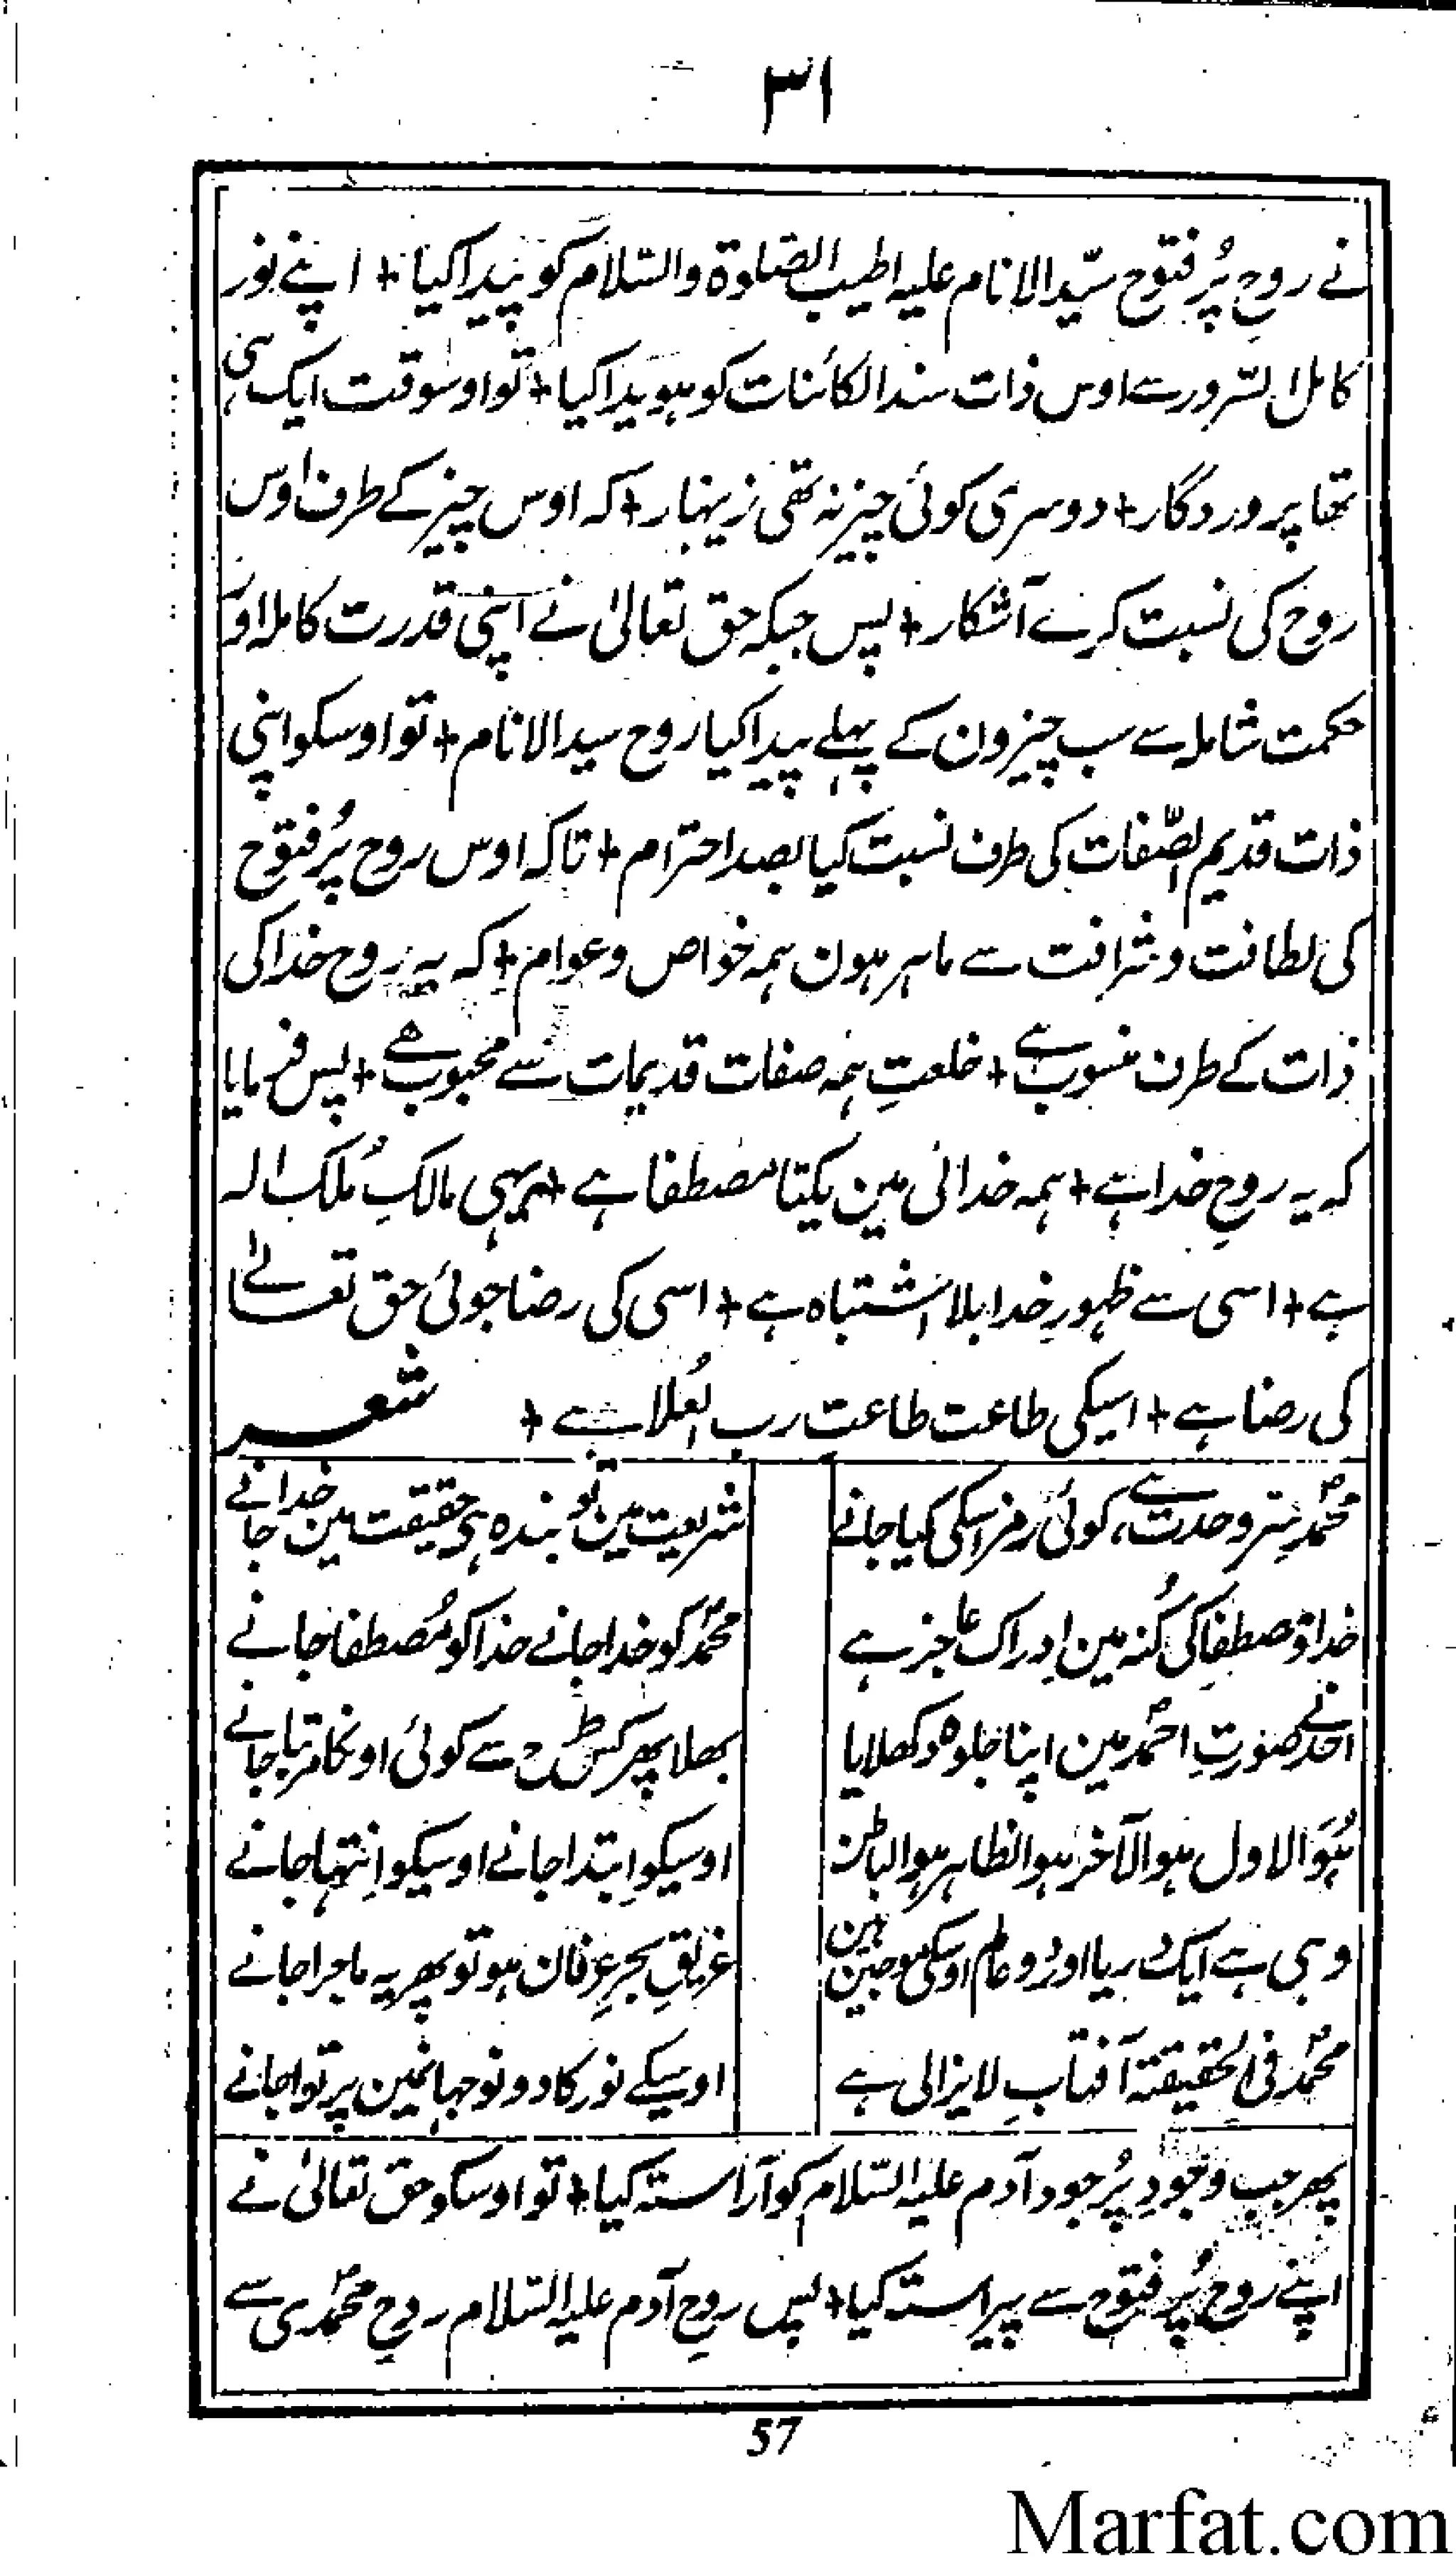 ۳۱
نے روحِ پُر فتوح سیّد الانام علیہ اطیب الصّلوۃ والسّلام کو پیدا کیا + اپنے نور
کامل السّرور سے اوس ذات سند الکائنات کو ہویدا کیا + تو اوسوقت ایک ہی
تھا پروردگار + دوسری کوئی چیز نہ تھی زینہار + کہ اوس چیز کے طرف اوس
روح کی نسبت کرے آشکار + پس جبکہ حق تعالیٰ نے اپنی قدرت کاملہ اور
حکمت شاملہ سے سب چیزون کے پہلے پیدا کیا روح سید الانام + تو اوسکو اپنی
ذات قدیم الصّفات کی طرف نسبت کیا بصد احترام + تاکہ اوس روح پُر فتوح
کی لطافت و شرافت سے ماہر ہون ہمہ خواص و عوام + کہ یہ روح خدا کی
ذات کے طرف منسوب ہے + خلعتِ ہمہ صفات قدیمات سے محبوب ہے + پس فرمایا
کہ یہ روحِ خدا ہے + ہمہ خدائی مین یکتا مصطفا ہے + یہی مالکِ مُلک الہ
ہے + اسی سے ظہورِ خدا بلا اشتباہ ہے + اسی کی رضا جوئی حق تعالےٰ
کی رضا ہے + اسیکی طاعت طاعت رب العُلا ہے + شعر
محمدؐ سِرِّ وحدت ہے، کوئی رمز اسکی کیا جانے شریعت مین تو بندہ ہی حقیقت مین خدا جانے
خدا و مصطفا کی کُنہ مین اِدراک عاجز ہے محمدؐ کو خدا جانے خدا کو مُصطفا جانے
احد نے صورتِ احمدؐ مین اپنا جلوہ دکھلایا بھلا پھر کس طرح سے کوئی اونکا مرتبا جانے
ہُوَ الاول ہو الآخر ہو الظاہر ہو الباطن اوسیکو اِبتدا جانے اوسیکو اِنتہا جانے
وہی ہے ایک دریا اور دو عالم اوسکی موجین ہین غریقِ بحرِ عِرفان ہو تو پھر یہ ماجرا جانے
محمدؐ فی الحقیقۃ آفتابِ لایزالی ہے اوسیکے نور کا دونو جہانمین پر توا جانے
پھر جب وجودِ پُر جود آدم علیہ السّلام کو آراستہ کیا + تو اوسکو حق تعالیٰ نے
اپنے روح پُر فتوح سے پیراستہ کیا + پس روحِ آدم علیہ السّلام روحِ محمدؐی سے
57
Marfat.com